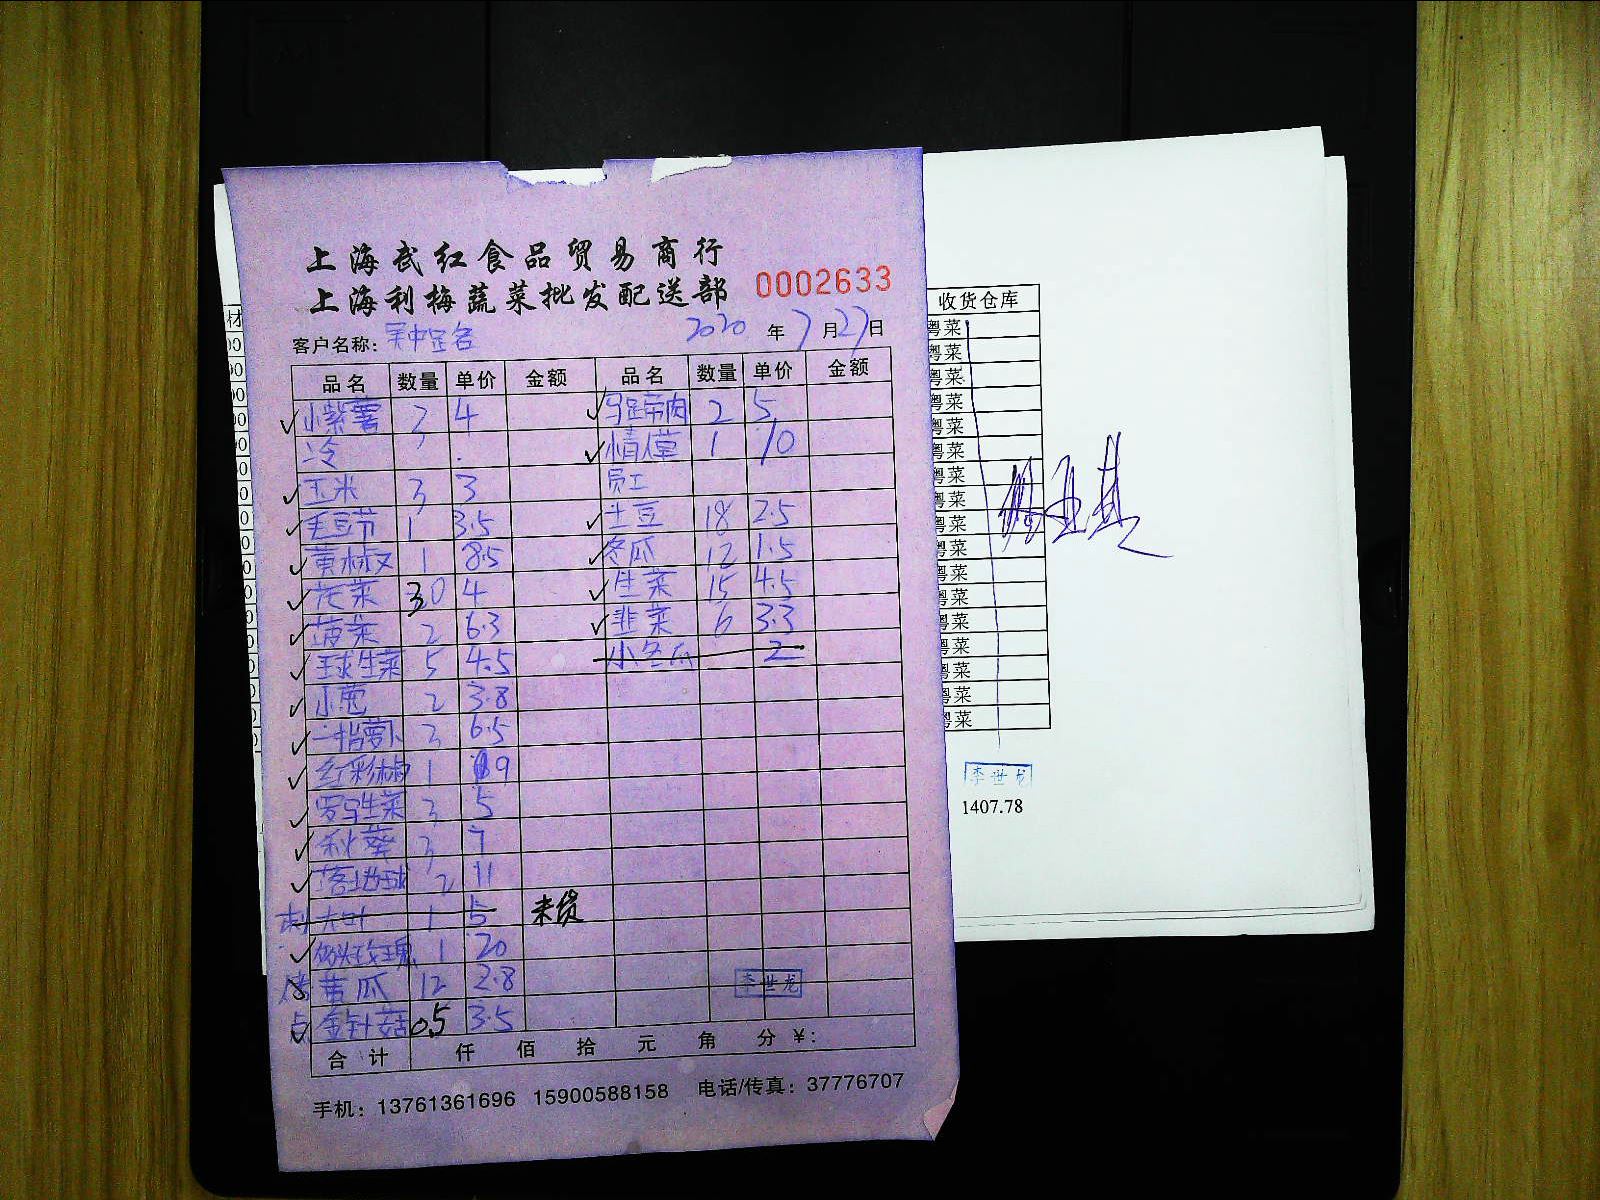 上海武红食品贸易商行
上海利梅蔬菜批发配送部 0002633
客户名称: 2020 年 7 月 27 日
品名 数量 单价 金额 品名 数量 单价 金额
小紫薯 3 4 马蹄肉 2 5
冷 情人草 1 10
玉米 3 3 员工
毛豆节 1 3.5 土豆 18 2.5
黄椒 1 8.5 冬瓜 12 1.5
花菜 30 4 生菜 15 4.5
菠菜 2 6.3 韭菜 6 3.3
球生菜 5 4.5 小冬瓜 2
小葱 2 3.8
一指萝卜 3 6.5
红彩椒 1 19
罗马生菜 3 5
秋葵 3 7
落地球 2 11
刺 大叶 1 5 未货
玫瑰 1 20
黄瓜 12 2.8
点 金针菇 0.5 3.5
李世龙
合计 仟 佰 拾 元 角 分 ¥:
手机: 13761361696 15900588158 电话/传真: 37776707
材
收货仓库
粤菜
粤菜
粤菜
粤菜
粤菜
粤菜
粤菜
粤菜
粤菜
粤菜
粤菜
粤菜
粤菜
粤菜
粤菜
粤菜
粤菜
李世龙
1407.78